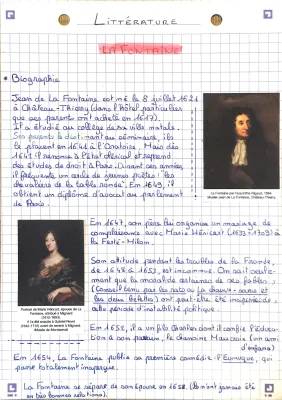 LITTÉRATURE
LA FONTAINE
• Biographie
Jean de La Fontaine est né le 8 juillet 1621
à Château-Thierry (dans l'hôtel particulier
que ses parents ont acheté en 1617).
Il a étudié au collège de sa ville natale.
Ses parents le destinant au séminaire, ils
le placent en 1641 à l'Oratoire. Mais dès
1642 il renonce à l'état clérical et reprend
des études de droit à Paris. Durant ces années,
il fréquente un cercle de jeunes poètes : "les
chevaliers de la table ronde". En 1649, il
obtient un diplôme d'avocat au parlement
de Paris.
La Fontaine par Hyacinthe Rigaud, 1684
Musée Jean de La Fontaine, Château-Thierry.
En 1647, son père lui organise un mariage de
complaisance avec Marie Héricart (1633-1709) à
la Ferté-Milon.
Son attitude pendant les troubles de la Fronde,
de 1648 à 1653, est inconnue. On sait seule-
ment que la modalité de certaines de ses fables
(Conseil tenu par les rats ou La chauve-souris et
les deux belettes) ont peut-être été inspirées de
cette période d'instabilité politique.
Portrait de Marie Héricart, épouse de La
Fontaine, attribué à Mignard
(1612-1695)
En 1653, il a un fils Charles dont il confie l'éduca-
tion à son parrain, le chanoine Maucroix (un ami
d'enfance)
En 1654, La Fontaine publie sa première comédie : l'Eunuque, qui
passe totalement inaperçue.
La Fontaine se sépare de son épouse en 1658. (Ils n'ont jamais été
en très bonnes relations).